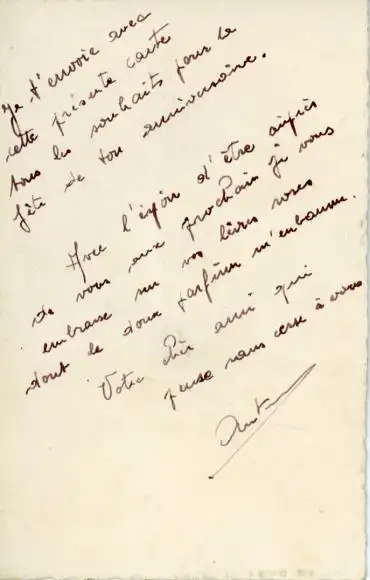 Je t'envoie avec
cette présente carte
tous les souhaits pour la
fête de ton anniversaire.
Avec l'espoir d'être auprès
de vous aux prochain je vous
embrasse sur vos lèvres roses
dont le doux parfum m'embaume.
Votre cher ami qui
pense sans cesse à vous